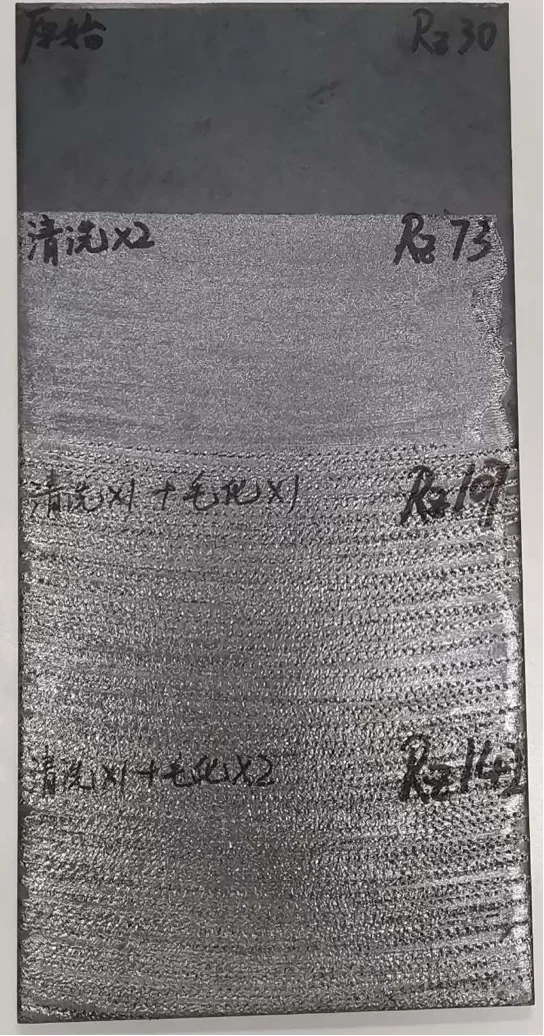 原始 Rz 30
清洗X2 Rz 73
清洗X1+毛化X1 Rz 107
清洗X1+毛化X2 Rz 142